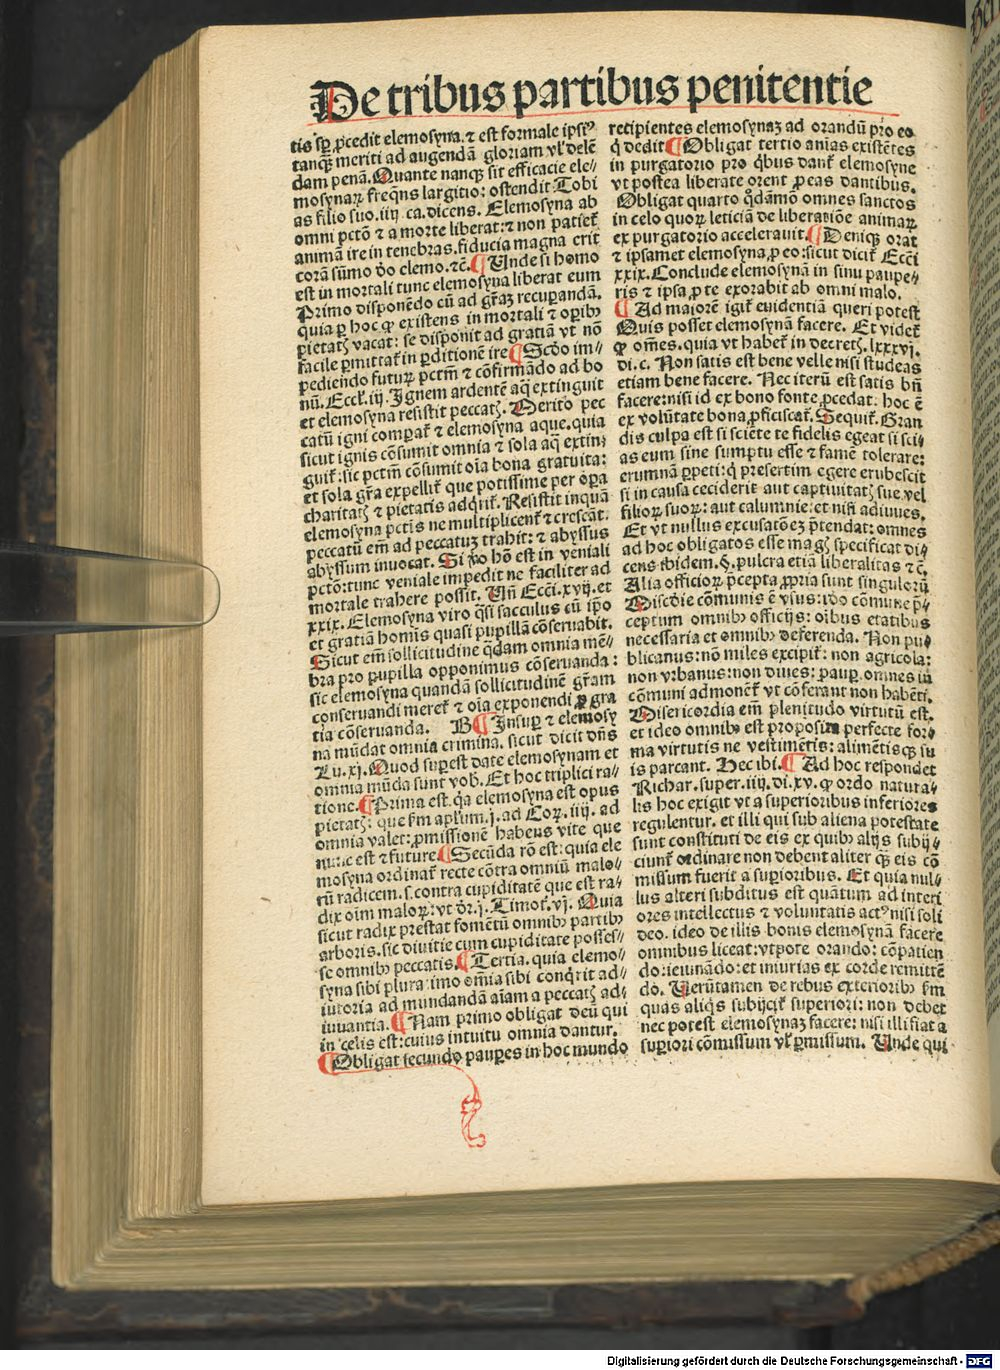 De tribus partibus penitentie
tis sꝑ ꝓcedit elemosyna. ⁊ est formale ipsiꝰ
tanqꝫ meriti ad augendā gloriam vł delē
dam penā. Quante nanqꝫ sit efficacie ele⸗
mosynaꝝ freqñs largitio: ostendit Tobi
as filio suo. iiij. ca. dicens. Elemosyna ab
omni pctō ⁊ a morte liberat: ⁊ non patiet᷑
animā ire in tenebras. fiducia magna erit
corā sūmo deo elemo. ⁊c̄. ¶ Unde si homo
est in mortali tunc elemosyna liberat eum
Primo disponēdo eū ad gr̄aꝫ recuꝑandā.
quia ꝑ hoc ꝙ existens in mortali ⁊ oꝑibꝰ
pietatꝭ vacat: se disponit ad gratiā vt nō
facile ꝑmittat᷑ in ꝑditionē ire ¶ Scd̄o im⸗
pediendo futuꝝ pctm̄ ⁊ cōfirmādo ad bo
nū. Eccł. iij. Ignem ardentē aq̄ extinguit
et elemosyna resistit peccatꝭ. Merito pec
catū igni compat᷑ ⁊ elemosyna aque. quia
sicut ignis cōsumit omnia ⁊ sola aq̄ extin⸗
guit᷑: sic pctm̄ cōsumit oīa bona gratuita:
et sola gr̄a expellit᷑ que potissime per oꝑa
charitatꝭ ⁊ pietatis adqrit᷑. Resistit inquā
elemosyna pctīs ne multiplicent᷑ ⁊ crescāt.
peccatū em̄ ad peccatuꝫ trahit: ⁊ abyssus
abyssum inuocat. Si ꝟo hō est in veniali
pctō: tunc veniale impedit ne faciliter ad
mortale trahere possit. Uñ Ecci. xvij. et
xxix. Elemosyna viro q̄si sacculus cū ip̄o
et gratiā homīs quasi pupillā cōseruabit.
Sicut em̄ sollicitudine qdam omnia mē⸗
bra pro pupilla opponimus cōseruanda:
sic elemosyna quandā sollicitudinē gr̄am
conseruandi meret᷑ ⁊ oīa exponendi ꝓ gra
tia cōseruanda. B ¶ Insuꝑ ⁊ elemosy
na mūdat omnia crimina. sicut dicit dn̄s
Lu. xi. Quod suꝑest date elemosynam et
omnia mūda sunt vob. Et hoc triplici ra⸗
tione. ¶ Prima est. qa elemosyna est opus
pietatꝭ: que ẜm apl̄um. j. ad Coꝝ. iiij. ad
omnia valet: ꝓmissionē habens vite que
nunc est ⁊ future. ¶ Secūda rō est: quia ele
mosyna ordinat᷑ recte cōtra omniū malo⸗
rū radicem. s. contra cupiditatē que est ra⸗
dix oīm maloꝝ: vt dr̄. j. Timot᷑. vj. Quia
sicut radix prestat fomētū omnibꝰ partibꝰ
arboris. sic diuitie cum cupiditate posses⸗
se omnibꝰ peccatis. ¶ Tertia. quia elemo⸗
syna sibi plura: imo omīa sibi conq̄rit ad⸗
iutoria ad mundandā aīam a peccatꝭ ad⸗
iuuantia. ¶ Nam primo obligat deū qui
in celis est: cuius intuitu omnia dantur.
¶ Obligat secundo pauꝑes in hoc mundo
recipientes elemosynaꝫ ad orandū pro eo
q̄ dedit ¶ Obligat tertio aīas existētes
in purgatorio pro qbus dant᷑ elemosyne
vt postea liberate orent ꝓ eas dantibus.
Obligat quarto qdāmō omnes sanctos
in celo quoꝝ leticiā de liberatiōe animaꝝ
ex purgatorio accelerauit. ¶ Deniqꝫ orat
⁊ ipsamet elemosyna ꝓ eo: sicut dicit᷑ Ecci
xxix. Conclude elemosynā in sinu paupe⸗
ris ⁊ ipsa ꝓ te exorabit ab omni malo.
¶ Ad maiorē igit᷑ euidentiā queri potest
Quis posset elemosynā facere. Et videt᷑
ꝙ om̄es. quia vt habet᷑ in decretꝭ. lxxxvi.
di. c. Non satis est bene velle nisi studeas
etiam bene facere. Nec iterū est satis bn̄
facere: nisi id ex bono fonte ꝓcedat. hoc ē
ex volūtate bona ꝓficiscat᷑. Sequit᷑. Gran
dis culpa est si sciēte te fidelis egeat si sci⸗
as eum sine sumptu esse ⁊ famē tolerare:
erumnā ꝑpeti: q̄ presertim egere erubescit
si in causa ceciderit aut captiuitatꝭ sue vel
filioꝝ suoꝝ: aut calumnie: et nisi adiuues.
Et vt nullus excusatōeꝫ p̄tendat: omnes
ad hoc obligatos esse magꝭ specificat di⸗
cens ibidem. §. pulcra etiā liberalitas ⁊c̄.
Alia officioꝝ p̄cepta ꝓpria sunt singuloꝝ
Miscd̄ie cōmunis ē vsus: ideo cōmune p̄⸗
ceptum omnibꝰ officijs: oībus etatibus
necessaria et omnibꝰ deferenda. Non pu⸗
blicanus: nō miles excipit᷑: non agricola:
non vrbanus: non diues: pauꝑ. omnes in
cōmuni admonet᷑ vt cōferant non habēti.
Misericordia em̄ plenitudo virtutū est.
et ideo omnibꝰ est proposita perfecte for⸗
ma virtutis ne vestimētis: alimētisqꝫ su
is parcant. Hec ibi. ¶ Ad hoc respondet
Richar. super. iiij. di. xv. ꝙ ordo natura⸗
lis hoc exigit vt a superioribus inferiores
regulentur. et illi qui sub aliena potestate
sunt constituti de eis ex quibꝰ alijs subij⸗
ciunt᷑ ordinare non debent aliter qꝫ eis cō
missum fuerit a suꝑioribus. Et quia nul⸗
lus alteri subditus est quātum ad interi
ores intellectus ⁊ voluntatis actꝰ nisi soli
deo. ideo de illis bonis elemosynā facere
omnibus liceat: vtpote orando: cōpatien
do: ieiunādo: et iniurias ex corde remittē
do. Uerūtamen de rebus exterioribꝰ ẜm
quas aliqs subijcit᷑ superiori: non debet
nec potest elemosynaꝫ facere: nisi illi fiat a
suꝑiori cōmissum vł ꝑmissum. Unde qui
Digitalisierung gefördert durch die Deutsche Forschungsgemeinschaft - DFG